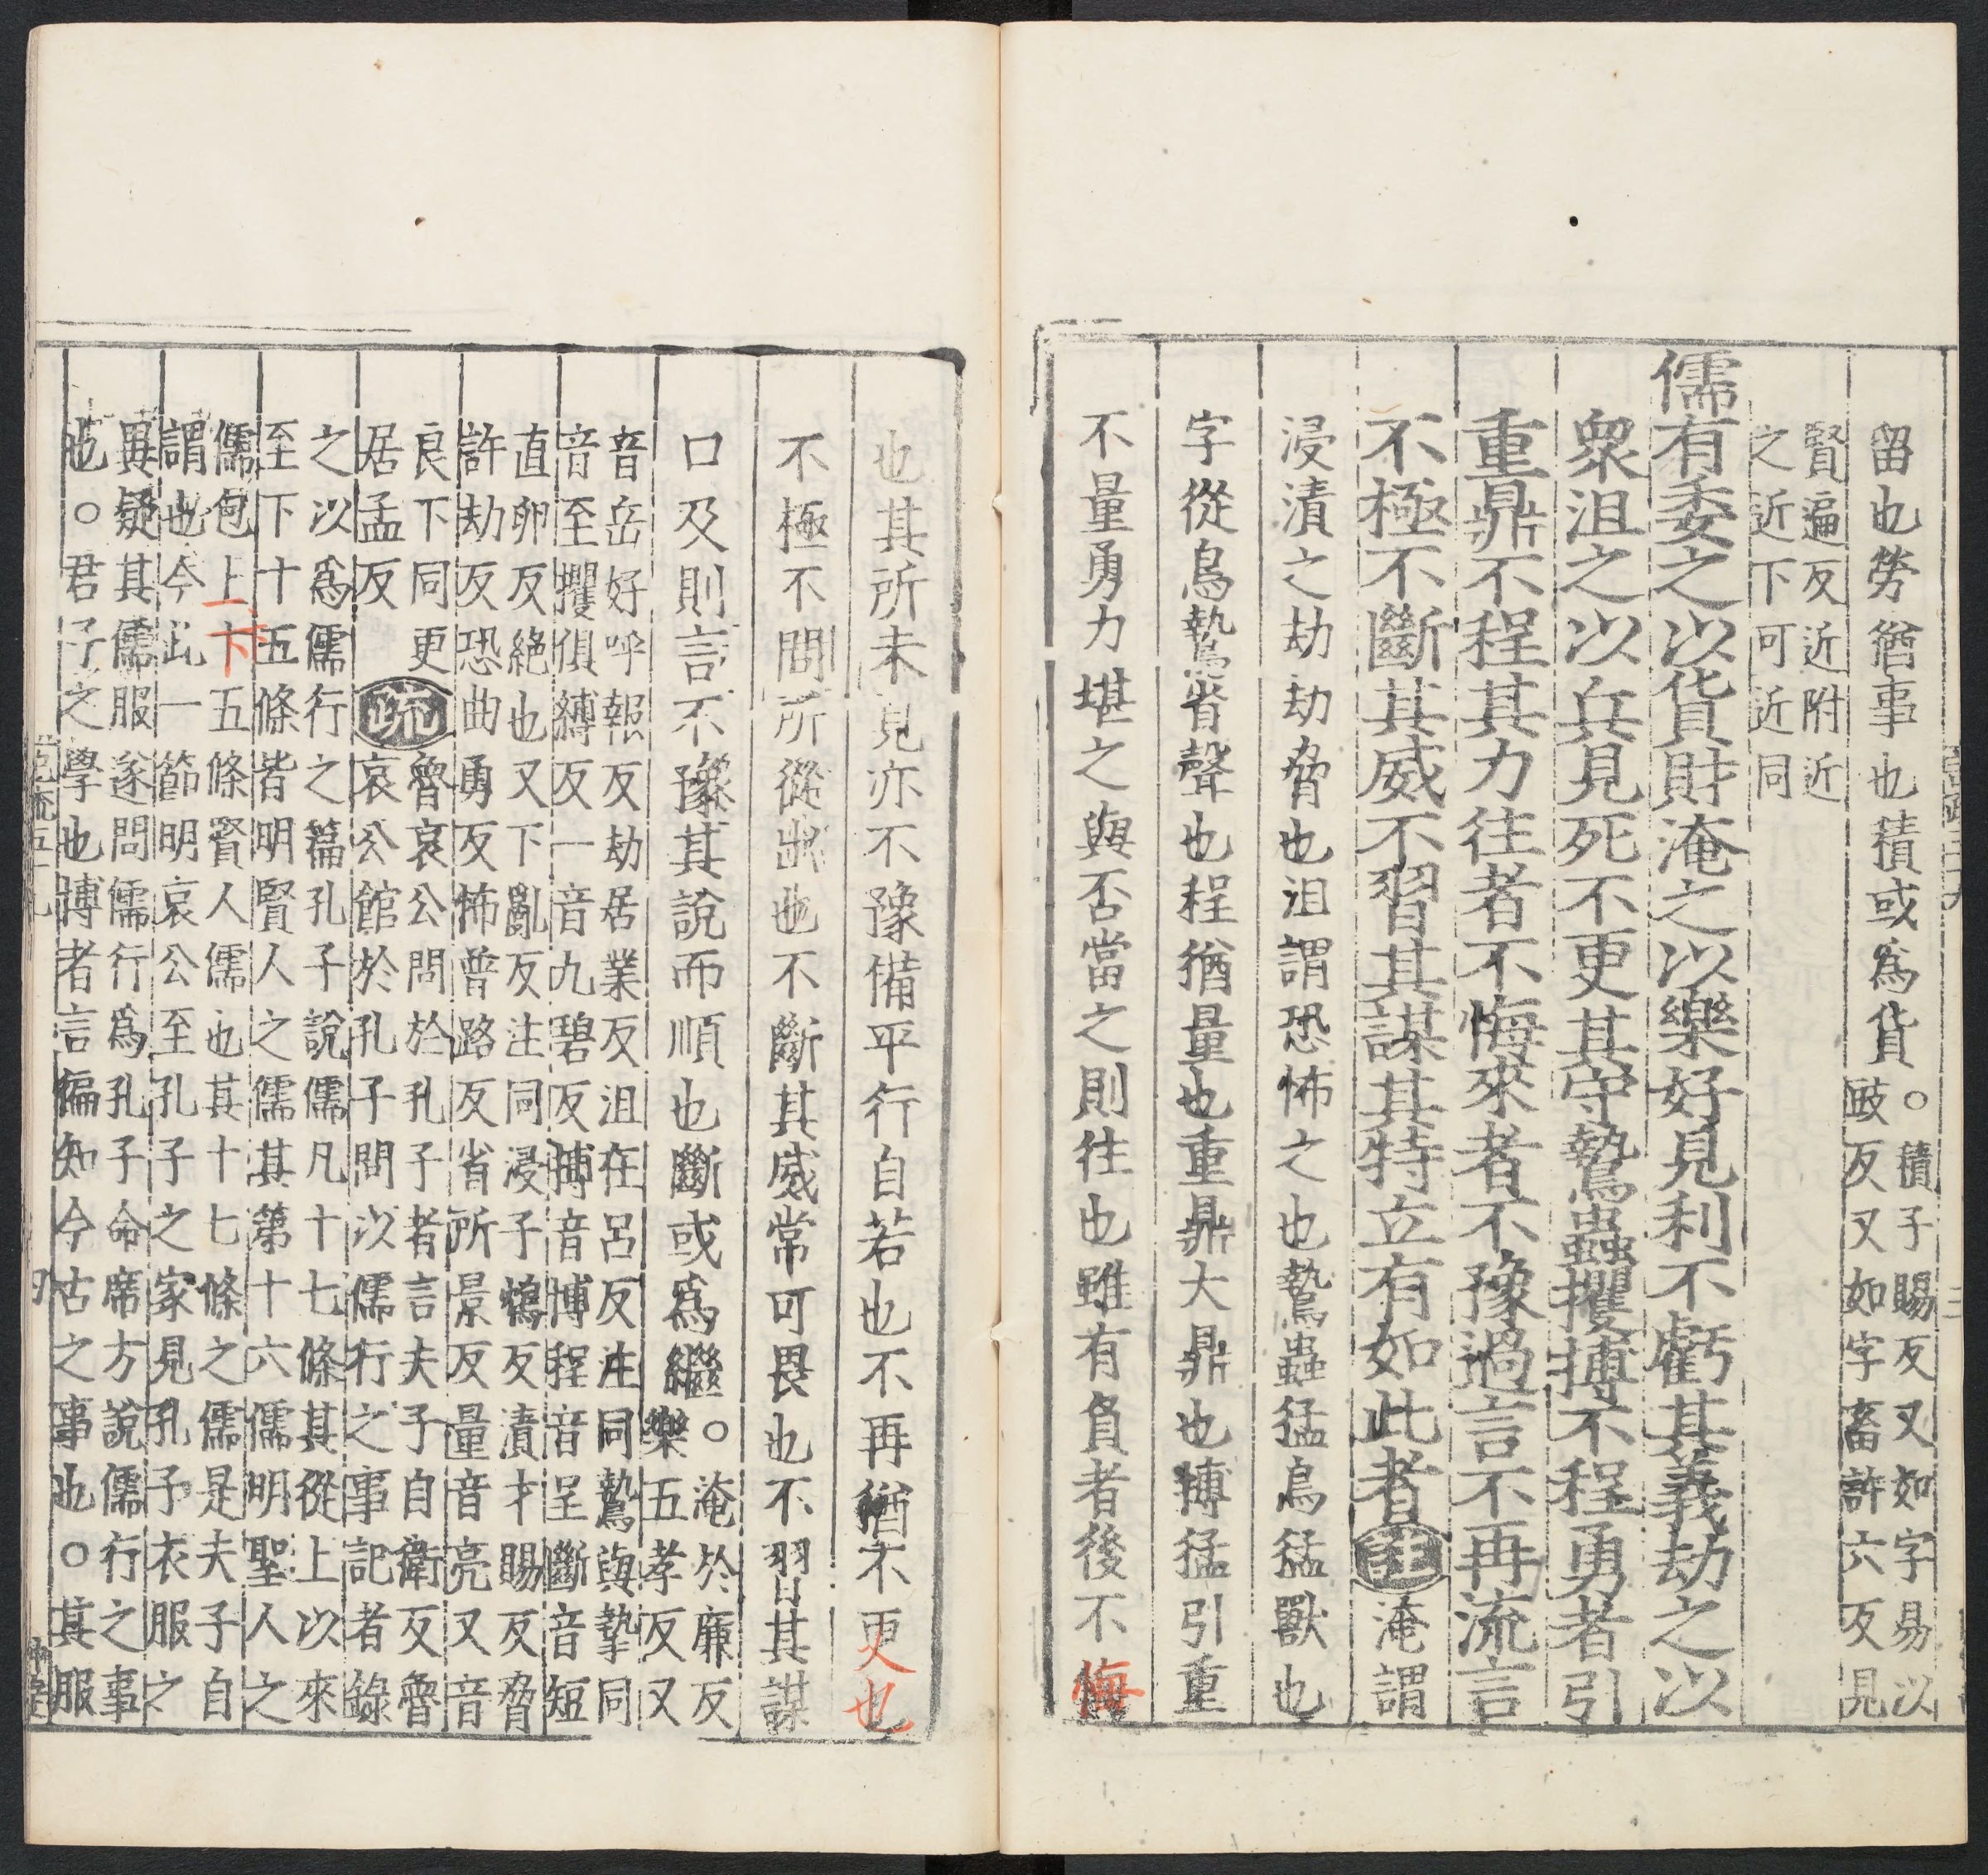 留也勞猶事也積或爲貨○積子賜反又如字易以
豉反又如字畜許六反見
賢遍反近附近
之近下可近同
儒有委之以貨財淹之以樂好見利不虧其義劫之以
衆沮之以兵見死不更其守鷙蟲攫搏不程勇者引
重鼎不程其力往者不悔來者不豫過言不再流言
不極不斷其威不習其謀其特立有如此者註淹謂
浸漬之劫劫脅也沮謂恐怖之也鷙蟲猛鳥猛獸也
字從鳥鷙省聲也程猶量也重鼎大鼎也搏猛引重
不量勇力堪之與否當之則往也雖有負者後不悔
也其所未見亦不豫備平行自若也不再猶不更也
不極不問所從出也不斷其威常可畏也不習其謀
口及則言不豫其說而順也斷或爲繼○淹於廉反
樂五孝反又
音岳好呼報反劫居業反沮在呂反注同鷙與摯同
音至攫俱縛反一音九碧反搏音博程音呈斷音短
直卵反絶也又下亂反注同浸子鴆反漬才賜反脅
許劫反恐曲勇反怖普路反省所景反量音亮又音
良下同更
居孟反
疏魯哀公問於孔子者言夫子自衛反魯
哀公館於孔子問以儒行之事記者錄
之以爲儒行之篇孔子說儒凡十七條其從上以來
至下十五條皆明賢人之儒其第十六儒明聖人之
儒包上下五條賢人儒也其十七條之儒是夫子自
謂也今此一節明哀公至孔子之家見孔子衣服之
異疑其儒服遂問儒行爲孔子命席方說儒行之事
也○君子之學也博者言徧知今古之事也○其服